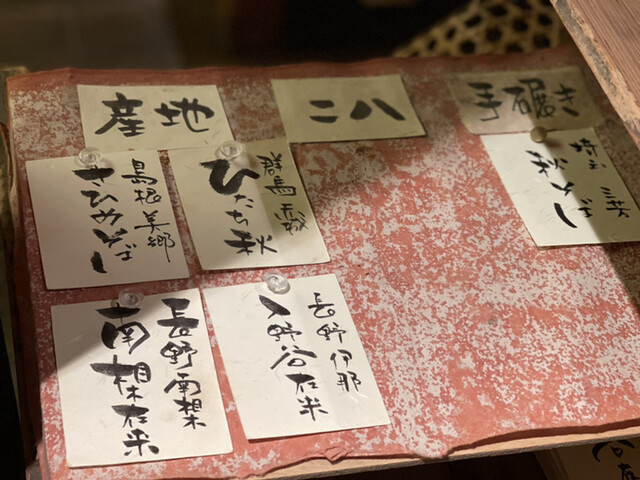 産地
二八
手碾き
島根 美郷
さひめそば
群馬
ひたち秋
埼玉 三芳
長野 南相木
南相木在来
長野 伊那
入野谷在来